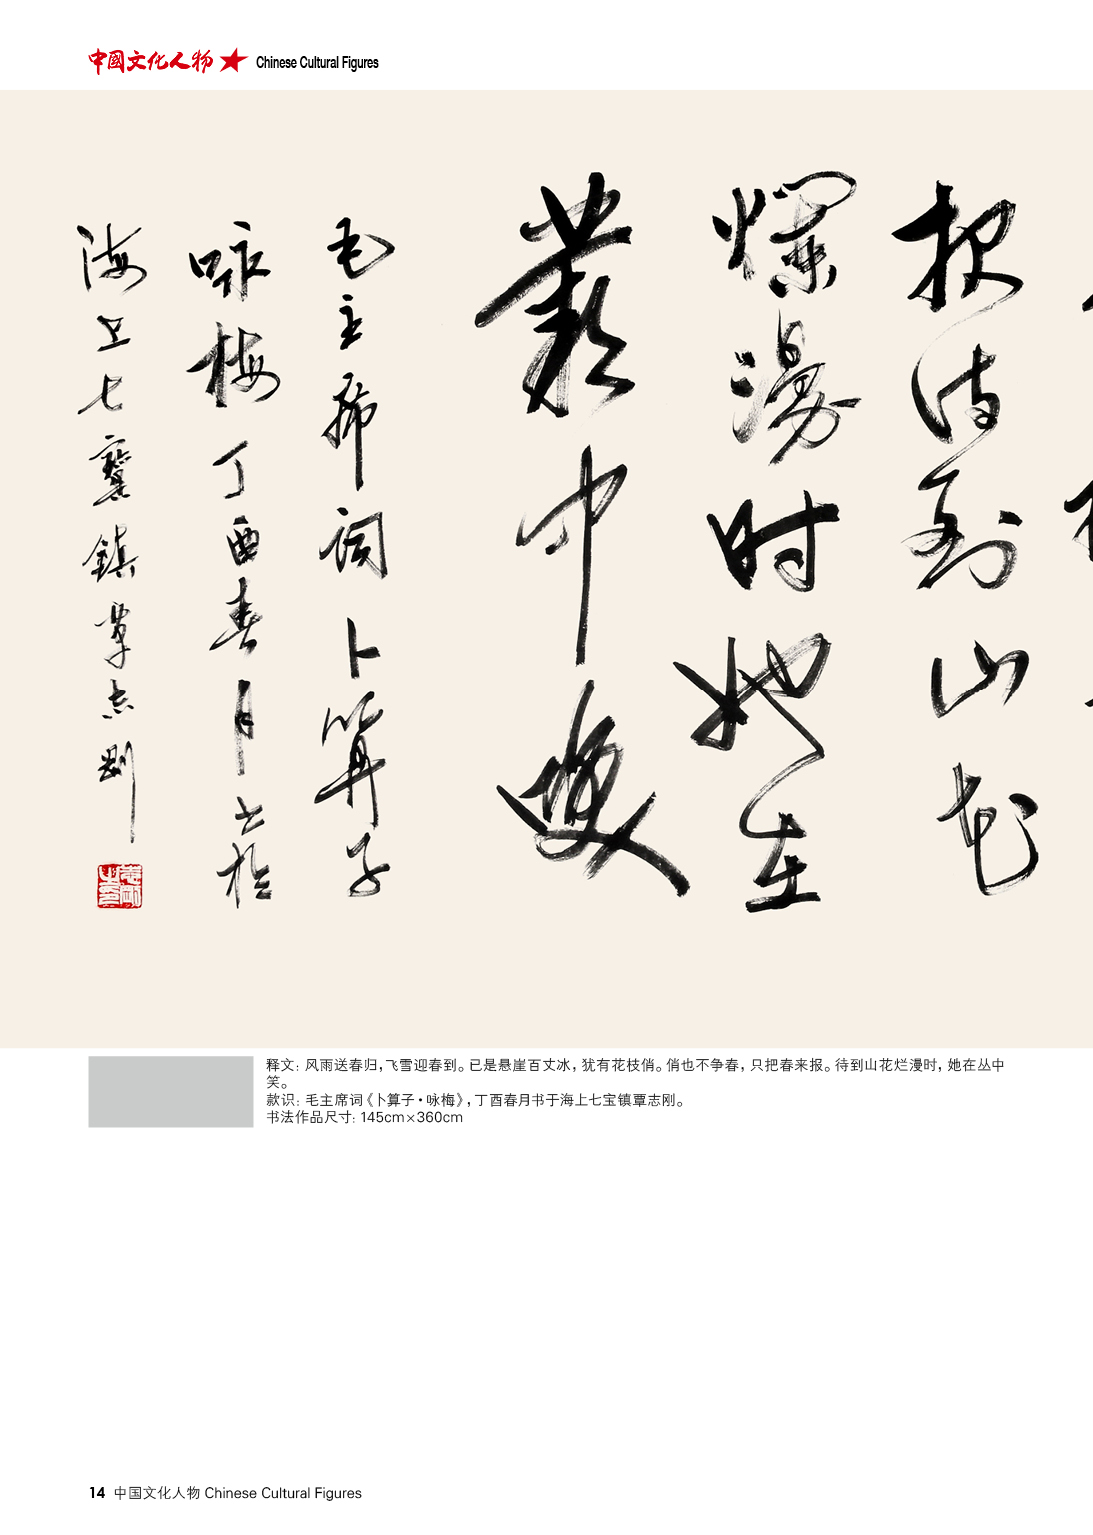 中國文化人物 Chinese Cultural Figures
报待到山花
烂漫时她在
丛中笑
毛主席词卜算子
咏梅丁酉春月书于
海上七宝镇覃志刚
释文: 风雨送春归，飞雪迎春到。已是悬崖百丈冰，犹有花枝俏。俏也不争春，只把春来报。待到山花烂漫时，她在丛中
笑。
款识: 毛主席词《卜算子·咏梅》，丁酉春月书于海上七宝镇覃志刚。
书法作品尺寸: 145cm×360cm
14 中国文化人物 Chinese Cultural Figures